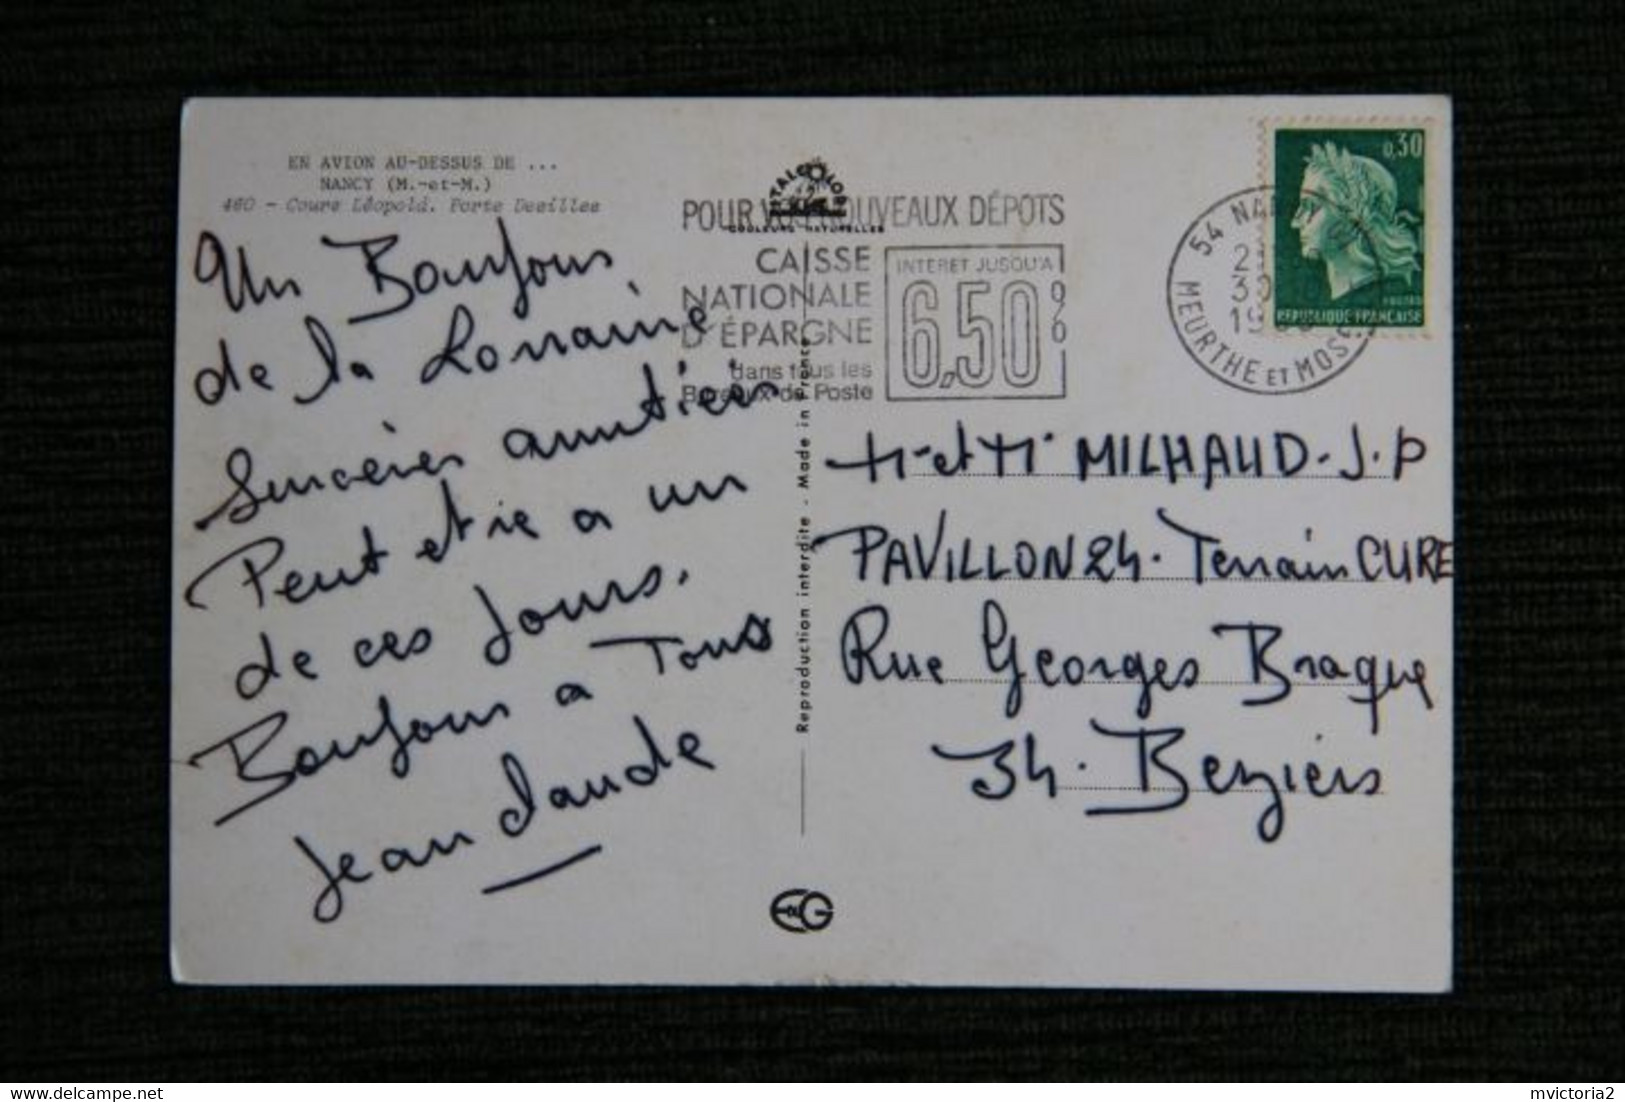 EN AVION AU-DESSUS DE ...
NANCY (M.-et-M.)
460 - Cours Léopold. Porte Desilles
Un Bonjour
de la Lorraine
Sincères amitiés
Peut etre a un
de ces Jours.
Bonjour a Tous
Jean Claude
COULEURS NATURELLES
POUR NOUVEAUX DÉPOTS
CAISSE
NATIONALE
D'ÉPARGNE
dans tous les
Bureaux de Poste
INTERET JUSQU'A
6,50 %
54 NANCY
30
MEURTHE ET MOS
0,30
REPUBLIQUE FRANÇAISE
Reproduction interdite - Made in France
M. et Me MILHAUD. J. P
PAVILLON 24. Terrain CURE
Rue Georges Braque
34. Beziers
EG
mvictoria2